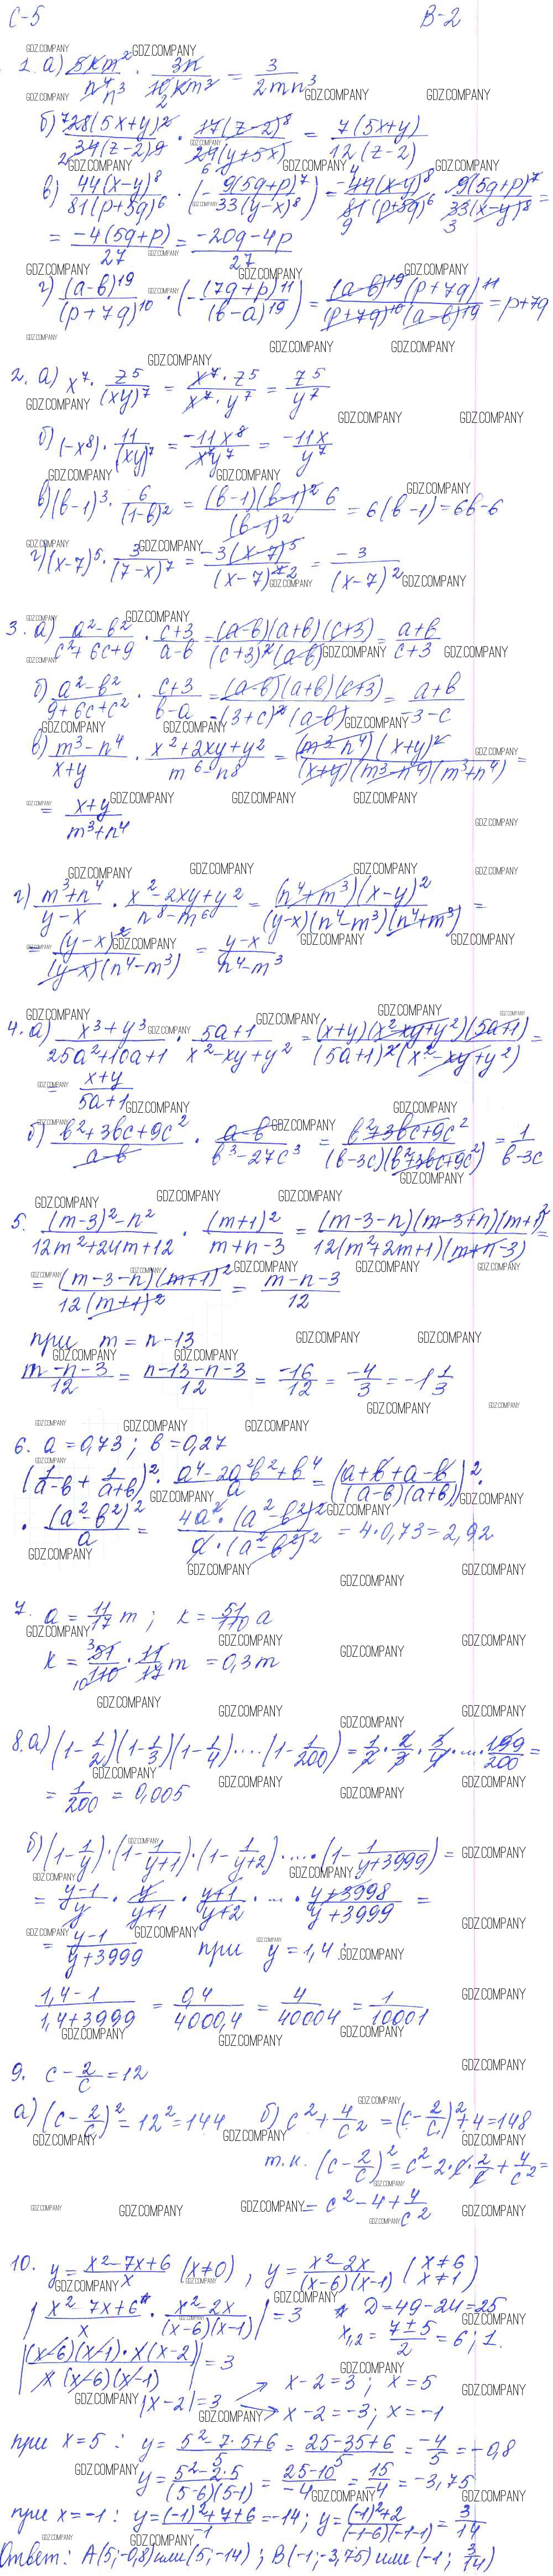 С-5 В-2
1. а) 5km²/n⁴ · 3n/10km³ = 3/2mn³
б) 28(5x+y)²/34(z-2)⁹ · 17(z-2)⁸/24(y+5x) = 7(5x+y)/12(z-2)
в) 44(x-y)⁸/81(p+5q)⁶ · (-9(5q+p)⁷/33(y-x)⁸) = -44(x-y)⁸/81(p+5q)⁶ · 9(5q+p)⁷/33(x-y)⁸ =
= -4(5q+p)/27 = -20q-4p/27
г) (a-b)¹⁹/(p+7q)¹⁰ · (-(7q+p)¹¹/(b-a)¹⁹) = (a-b)¹⁹(p+7q)¹¹/(p+7q)¹⁰(a-b)¹⁹ = p+7q
2. а) x⁷ · z⁵/(xy)⁷ = x⁷·z⁵/x⁷·y⁷ = z⁵/y⁷
б) (-x⁸) · 11/(xy)⁷ = -11x⁸/x⁷y⁷ = -11x/y⁷
в) (b-1)³ · 6/(1-b)² = (b-1)(b-1)²6/(b-1)² = 6(b-1) = 6b-6
г) (x-7)⁵ · 3/(7-x)⁷ = -3(x-7)⁵/(x-7)⁷ ² = -3/(x-7)²
3. а) a²-b²/c²+6c+9 · c+3/a-b = (a-b)(a+b)(c+3)/(c+3)²(a-b) = a+b/c+3
б) a²-b²/9+6c+c² · c+3/b-a = (a-b)(a+b)(c+3)/-(3+c)²(a-b) = a+b/-3-c
в) m³-n⁴/x+y · x²+2xy+y²/m⁶-n⁸ = (m³-n⁴)(x+y)²/(x+y)(m³-n⁴)(m³+n⁴) =
= x+y/m³+n⁴
г) m³+n⁴/y-x · x²-2xy+y²/n⁸-m⁶ = (n⁴+m³)(x-y)²/(y-x)(n⁴-m³)(n⁴+m³) =
= (y-x)²/(y-x)(n⁴-m³) = y-x/n⁴-m³
4. а) x³+y³/25a²+10a+1 · 5a+1/x²-xy+y² = (x+y)(x²-xy+y²)(5a+1)/(5a+1)²(x²-xy+y²) =
= x+y/5a+1
б) b²+3bc+9c²/a-b · a-b/b³-27c³ = b²+3bc+9c²/(b-3c)(b²+3bc+9c²) = 1/b-3c
5. (m-3)²-n²/12m²+24m+12 · (m+1)²/m+n-3 = (m-3-n)(m-3+n)(m+1)²/12(m²+2m+1)(m+n-3) =
= (m-3-n)(m+1)²/12(m+1)² = m-n-3/12
при m = n-13
m-n-3/12 = n-13-n-3/12 = -16/12 = -4/3 = -1 1/3
6. a = 0,73; b = 0,27
(1/a-b + 1/a+b)² · a⁴-2a²b²+b⁴/a = (a+b+a-b/(a-b)(a+b))² ·
· (a²-b²)²/a = 4a²·(a²-b²)²/a·(a²-b²)² = 4·0,73 = 2,92
7. a = 11/17 m; k = 51/110 a
k = 51/110 · 11/17 m = 0,3 m
8. а) (1-1/2)(1-1/3)(1-1/4)·...·(1-1/200) = 1/2 · 2/3 · 3/4 · ... · 199/200 =
= 1/200 = 0,005
б) (1-1/y)·(1-1/y+1)·(1-1/y+2)·...·(1-1/y+3999) =
= y-1/y · y/y+1 · y+1/y+2 · ... · y+3998/y+3999 =
= y-1/y+3999 при y = 1,4:
1,4-1/1,4+3999 = 0,4/4000,4 = 4/40004 = 1/10001
9. c - 2/c = 12
а) (c-2/c)² = 12² = 144 б) c²+4/c² = (c-2/c)²+4 = 148
т.к. (c-2/c)² = c²-2·c·2/c+4/c² =
= c²-4+4/c²
10. y = x²-7x+6/x (x≠0), y = x²-2x/(x-6)(x-1) (x≠6 x≠1)
|x²-7x+6*/x · x²-2x/(x-6)(x-1)| = 3 * D=49-24=25
x₁,₂ = 7±5/2 = 6; 1.
|(x-6)(x-1)·x(x-2)/x(x-6)(x-1)| = 3
|x-2| = 3 → x-2=3; x=5
→ x-2=-3; x=-1
при x=5: y = 5²-7·5+6/5 = 25-35+6/5 = -4/5 = -0,8
y = 5²-2·5/(5-6)(5-1) = 25-10/-4 = 15/-4 = -3,75
при x=-1: y = (-1)²+7+6/-1 = -14; y = (-1)²+2/(-1-6)(-1-1) = 3/14
Ответ: А(5;-0,8) или (5;-14); В(-1;-3,75) или (-1; 3/14)
GDZ.COMPANY